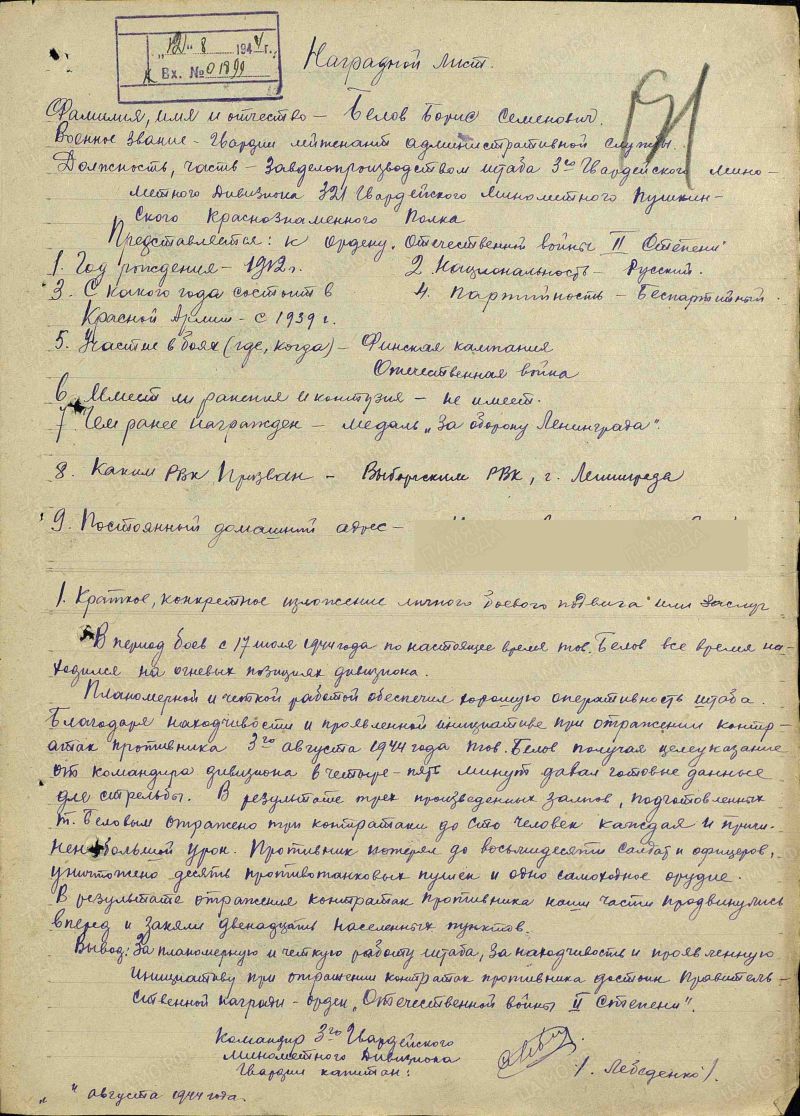 "12" 8 1944 г.
Вх. № 01899
Наградной лист.
191
Фамилия, имя и отчество – Белов Борис Семенович.
Военное звание – Гвардии лейтенант административной службы.
Должность, часть – Завделопроизводством штаба 3го Гвардейского Мино-
метного Дивизиона 321 Гвардейского Минометного Пушкин-
ского Краснознаменного Полка
Представляется: к ордену „Отечественной войны II Степени"
1. Год рождения – 1912 г. 2. Национальность – Русский.
3. С какого года состоит в 4. Партийность – Беспартийный.
Красной Армии – с 1939 г.
5. Участие в боях (где, когда) – Финская кампания
Отечественная война
6. Имеет ли ранения и контузия – не имеет.
7 Чем ранее награжден – медаль „За оборону Ленинграда".
8. Каким РВК Призван – Выборгским РВК, г. Ленинграда
9. Постоянный домашний адрес –
1. Краткое, конкретное изложение личного боевого подвига или заслуг
В период боев с 17 июля 1944 года по настоящее время тов. Белов все время на-
ходился на огневых позициях дивизиона.
Планомерной и четкой работой обеспечил хорошую оперативность штаба.
Благодаря находчивости и проявленной инициативе при отражении контр-
атак противника 3го августа 1944 года тов. Белов получая целеуказание
от командира дивизиона в четыре-пять минут давал готовые данные
для стрельбы. В результате трех произведенных залпов, подготовленных
т. Беловым отражено три контратаки до сто человек каждая и причи-
нен большой урон. Противник потерял до восьмидесяти солдат и офицеров,
уничтожено десять противотанковых пушек и одно самоходное орудие.
В результате отражения контратак противника наши части продвинулись
вперед и заняли двенадцать населенных пунктов.
Вывод: За планомерную и четкую работу штаба, за находчивость и проявленную
инициативу при отражении контратак противника достоин Правитель-
ственной награды – орден „Отечественной войны II Степени".
Командир 3го Гвардейского
Минометного Дивизиона
Гвардии капитан: /. Лебеденко /.
„ " августа 1944 года.